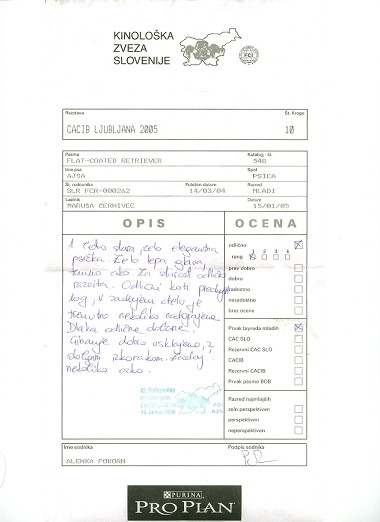 KINOLOŠKA
ZVEZA
SLOVENIJE
FCI
Razstava
Št. Kroga
CACIB LJUBLJANA 2005
10
Pasma
Katalog. št.
FLAT-COATED RETRIEVER
548
Ime psa
Spol
AJSA
PSICA
Št. rodovnika
Poležen datum
Razred
SLR FCR-000262
14/03/04
MLADI
Lastnik
Datum
MARUSA CERNIVEC
15/01/05
OPIS
OCENA
stara, zelo elegantna
psička. Zelo lepa glava,
temno oko. Za starost odlično
razvita. Odlični koti
nog, v delu je
trenutno nekoliko
Dlaka odlične
Gibanje dobro usklajeno, z
dolgim izkorakom. Zadaj
nekoliko ozko.
odlično
rang 1 2 3 4
prav dobro
dobro
zadostno
nezadostno
brez ocene
Prvak razreda mladih
CAC SLO
Rezervni CAC SLO
CACIB
Rezervni CACIB
Prvak pasme BOB
Razred najmlajših
zelo perspektiven
perspektiven
neperspektiven
Ime sodnika
Podpis sodnika
ALENKA POKORN
PURINA
PRO PLAN